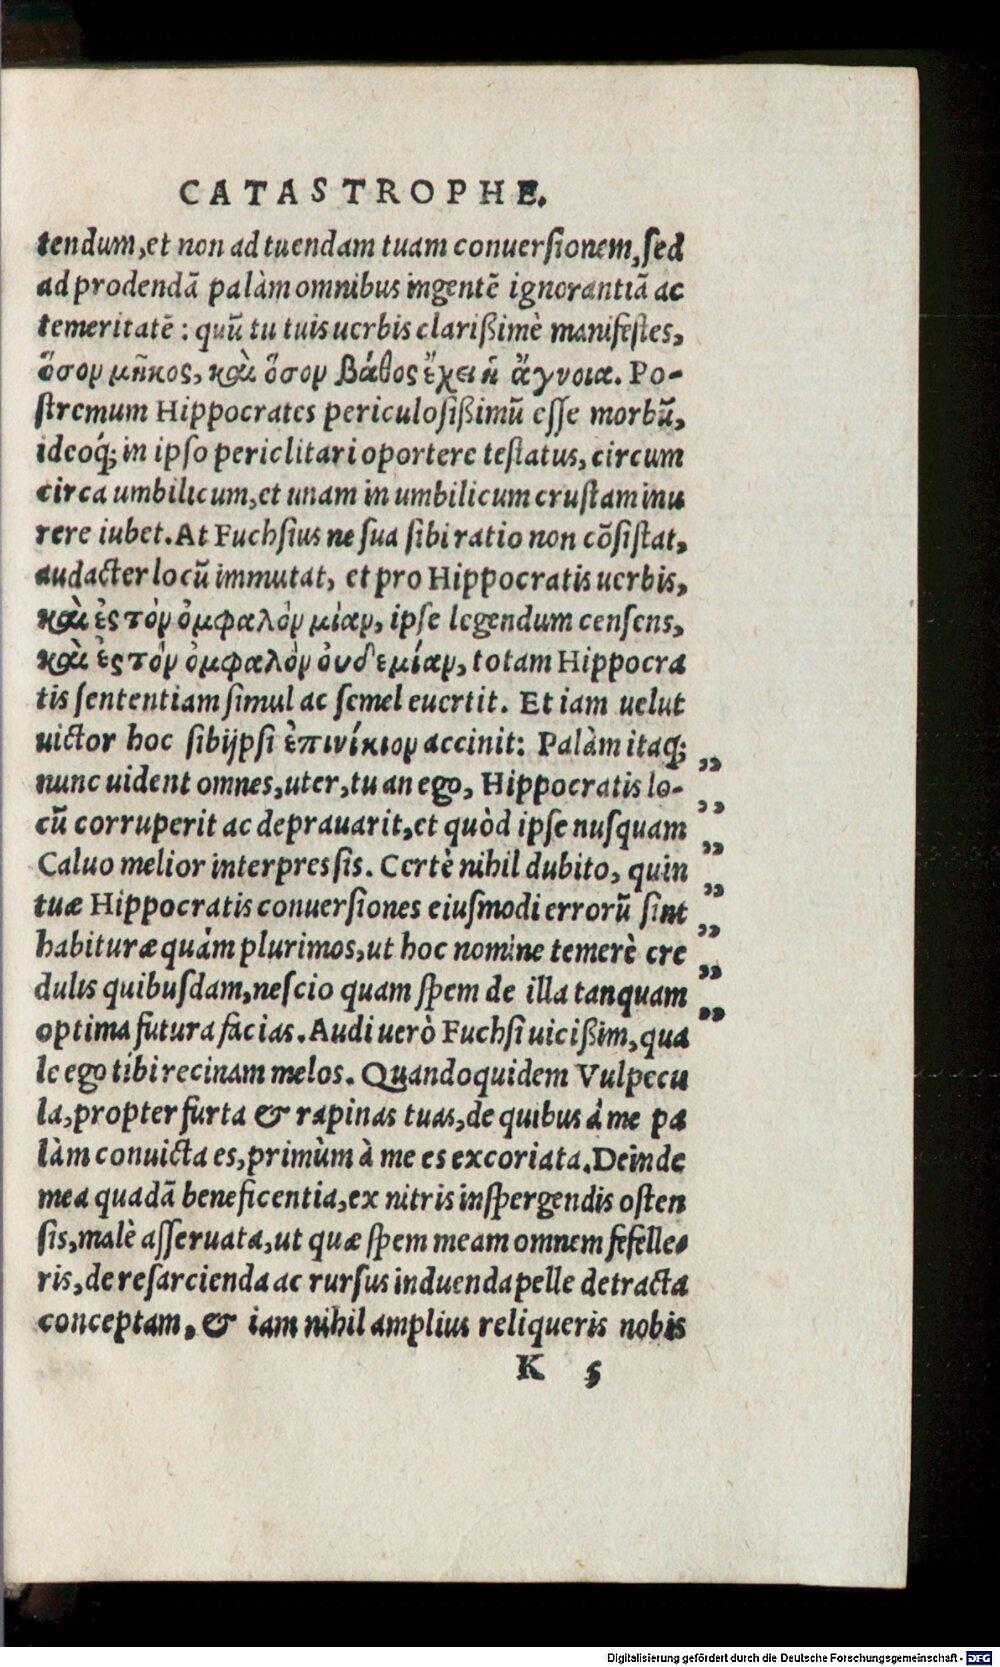 CATASTROPHE.
tendum, et non ad tuendam tuam conuersionem, sed
ad prodendã palàm omnibus ingentẽ ignorantiã ac
temeritatẽ: quũ tu tuis uerbis clarißimè manifestes,
ὅσον μῆκος, καὶ ὅσον βάθος ἔχει ἡ ἄγνοια. Po-
stremum Hippocrates periculosißimũ esse morbũ,
ideoq́; in ipso periclitari oportere testatus, circum
circa umbilicum, et unam in umbilicum crustam inu
rere iubet. At Fuchsius ne sua sibi ratio non cõsistat,
audacter locũ immutat, et pro Hippocratis uerbis,
καὶ ἐς τὸν ὀμφαλὸν μίαν, ipse legendum censens,
καὶ ἐς τὸν ὀμφαλὸν ὀυδεμίαν, totam Hippocra
tis sententiam simul ac semel euertit. Et iam uelut
uictor hoc sibijpsi ἐπινίκιον accinit: Palàm itaq́; „
nunc uident omnes, uter, tu an ego, Hippocratis lo- „
cũ corruperit ac deprauarit, et quòd ipse nusquam „
Caluo melior interpres sis. Certè nihil dubito, quin „
tuæ Hippocratis conuersiones eiusmodi errorũ sint „
habituræ quám plurimos, ut hoc nomine temerè cre „
dulis quibusdam, nescio quam spem de illa tanquam „
optima futura facias. Audi uerò Fuchsi uicißim, qua
le ego tibi recinam melos. Quandoquidem Vulpecu
la, propter furta & rapinas tuas, de quibus á me pa
làm conuicta es, primùm à me es excoriata. Deinde
mea quadã beneficentia, ex nitris inspergendis osten
sis, malè asseruata, ut quæ spem meam omnem fefelle-
ris, de resarcienda ac rursus induenda pelle detracta
conceptam, & iam nihil amplius reliqueris nobis
K 5
Digitalisierung gefördert durch die Deutsche Forschungsgemeinschaft - DFG